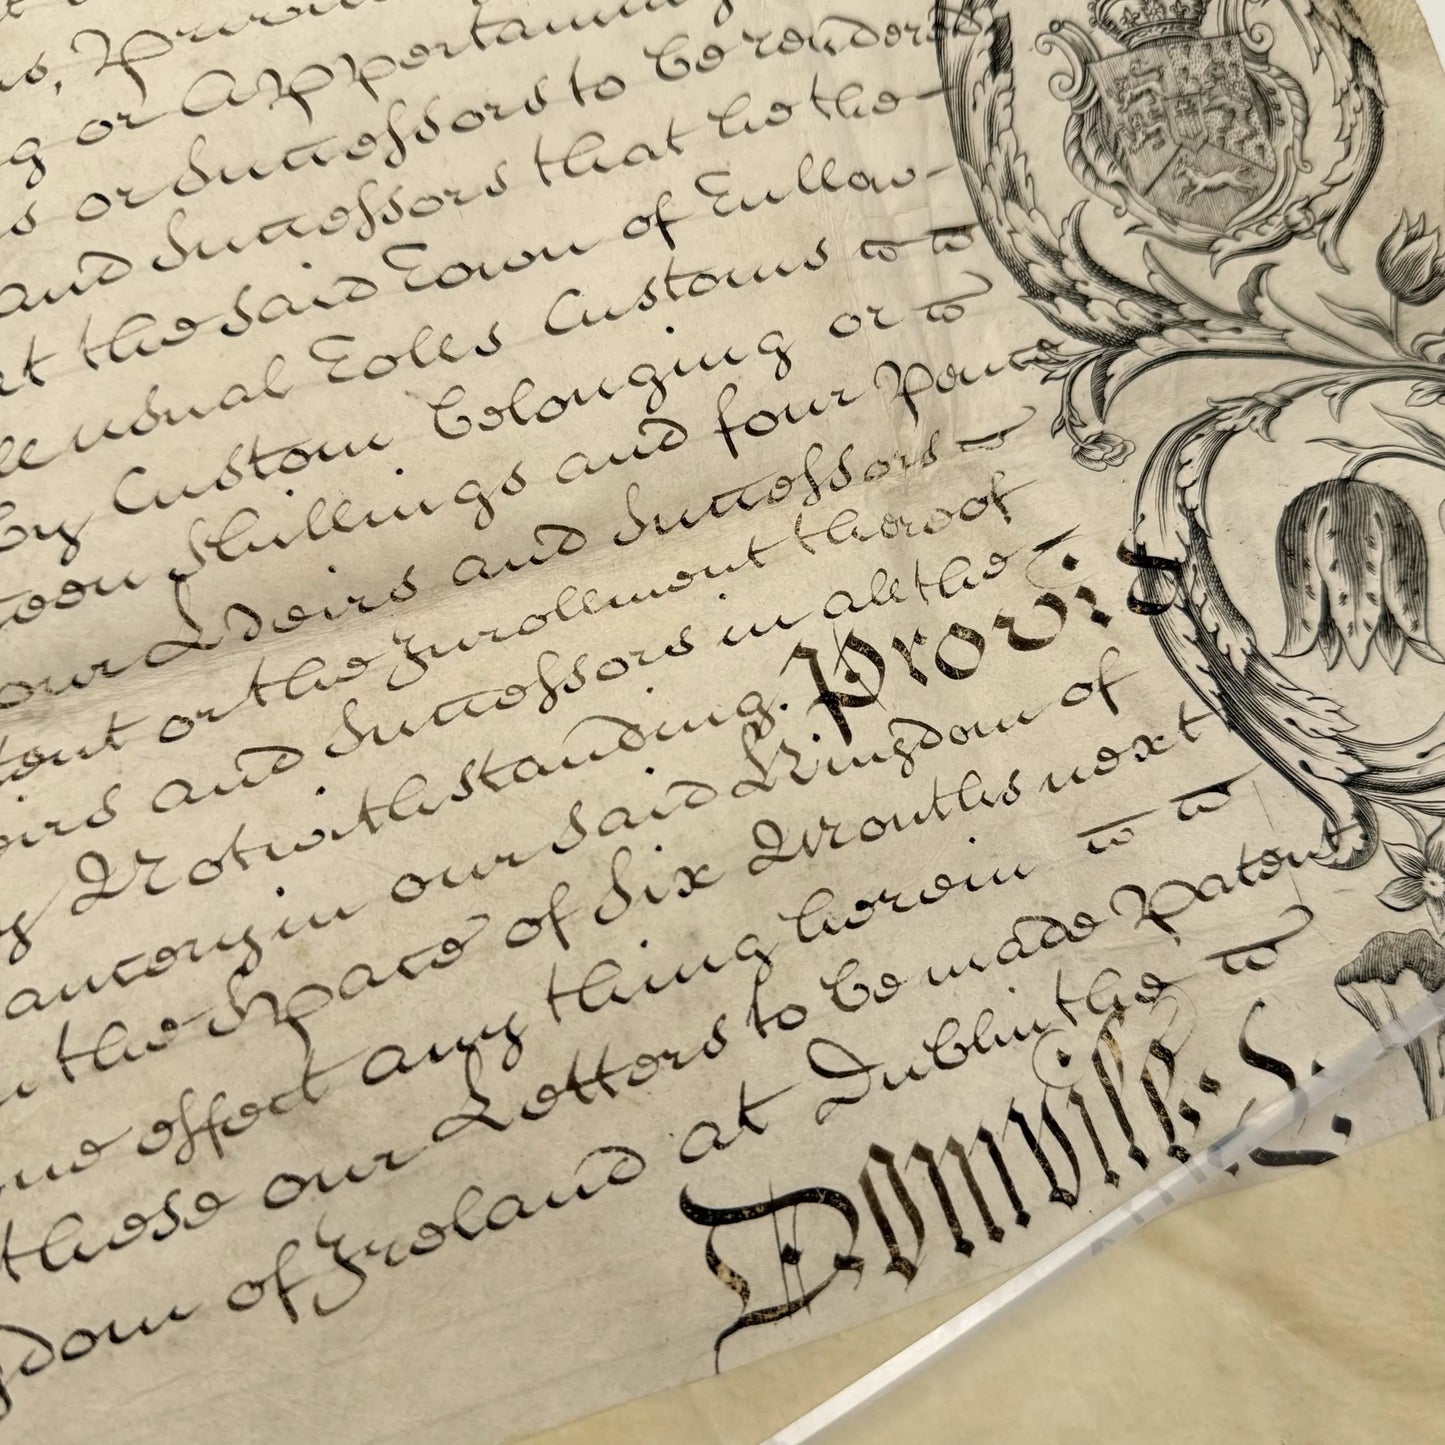 or Appertaining
or Successors to be rendered
and Successors that he the
the said Town of Tullow
usual Tolls Customs
by Custom belonging or
teen Shillings and four Pence
our Heirs and Successors
or the Inrollment thereof
and Successors in all the
Notwithstanding. Provi:s
in our said Kingdom of
the Space of Six Months next
effect any thing herein
these our Letters to be made Patent
dom of Ireland at Dublin the
Domvill: